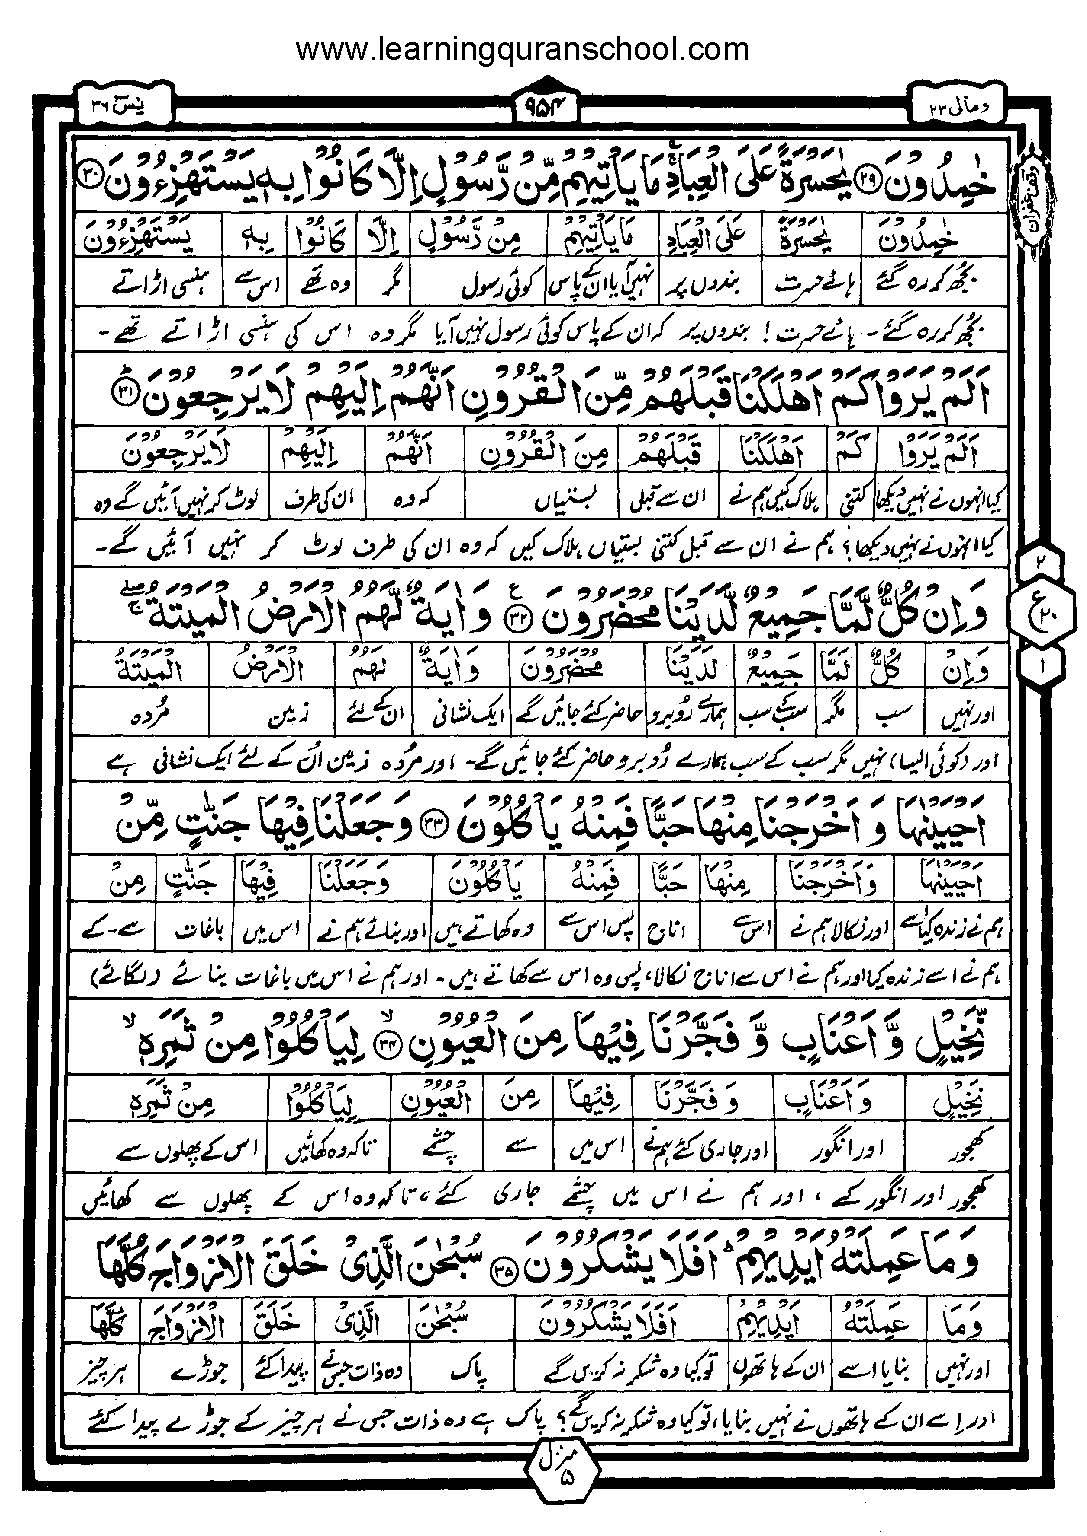 www.learningquranschool.com
ومالی ۲۳
۹۵۴
یٰسٓ ۳۶
خٰمِدُوْنَ ﴿۲۹﴾ یٰحَسْرَةً عَلَی الْعِبَادِ ۚ مَا یَاْتِیْهِمْ مِّنْ رَّسُوْلٍ اِلَّا كَانُوْا بِهٖ یَسْتَهْزِءُوْنَ ﴿۳۰﴾
خٰمِدُوْنَ یٰحَسْرَةً عَلَی الْعِبَادِ مَا یَاْتِیْهِمْ مِنْ رَّسُوْلٍ اِلَّا كَانُوْا بِهٖ یَسْتَهْزِءُوْنَ
بجھ کر رہ گئے ہائے حسرت بندوں پر نہیں آیا ان کے پاس کوئی رسول مگر وہ تھے اس سے ہنسی اڑاتے
بجھ کر رہ گئے۔ ہائے حسرت! بندوں پر کہ ان کے پاس کوئی رسول نہیں آیا مگر وہ اس کی ہنسی اڑاتے تھے۔
اَلَمْ یَرَوْا كَمْ اَهْلَكْنَا قَبْلَهُمْ مِّنَ الْقُرُوْنِ اَنَّهُمْ اِلَیْهِمْ لَا یَرْجِعُوْنَ ﴿۳۱﴾
اَلَمْ یَرَوْا كَمْ اَهْلَكْنَا قَبْلَهُمْ مِنَ الْقُرُوْنِ اَنَّهُمْ اِلَیْهِمْ لَا یَرْجِعُوْنَ
کیا انہوں نے نہیں دیکھا کتنی ہلاک کیں ہم نے ان سے قبل بستیاں کہ وہ ان کی طرف لوٹ کر نہیں آئیں گے وہ
کیا انہوں نے نہیں دیکھا؟ ہم نے ان سے قبل کتنی بستیاں ہلاک کیں کہ وہ ان کی طرف لوٹ کر نہیں آئیں گے۔
وَ اِنْ كُلٌّ لَّمَّا جَمِیْعٌ لَّدَیْنَا مُحْضَرُوْنَ ﴿۳۲﴾ وَ اٰیَةٌ لَّهُمُ الْاَرْضُ الْمَیْتَةُ
وَ اِنْ كُلٌّ لَمَّا جَمِیْعٌ لَدَیْنَا مُحْضَرُوْنَ وَ اٰیَةٌ لَهُمُ الْاَرْضُ الْمَیْتَةُ
اور نہیں سب مگر سب کے سب ہمارے رُوبرو حاضر کئے جائیں گے ایک نشانی ان کے لئے زمین مُردہ
اور (کوئی ایسا) نہیں مگر سب کے سب ہمارے رُوبرو حاضر کئے جائیں گے۔ اور مُردہ زمین اُن کے لئے ایک نشانی ہے
اَحْیَیْنٰهَا وَ اَخْرَجْنَا مِنْهَا حَبًّا فَمِنْهُ یَاْكُلُوْنَ ﴿۳۳﴾ وَ جَعَلْنَا فِیْهَا جَنّٰتٍ مِّنْ
اَحْیَیْنٰهَا وَ اَخْرَجْنَا مِنْهَا حَبًّا فَمِنْهُ یَاْكُلُوْنَ وَ جَعَلْنَا فِیْهَا جَنّٰتٍ مِنْ
ہم نے زندہ کیا اسے اور نکالا ہم نے اس سے اناج پس اس سے وہ کھاتے ہیں اور بنائے ہم نے اس میں باغات سے۔ کے
ہم نے اسے زندہ کیا اور ہم نے اس سے اناج نکالا، پس وہ اس سے کھاتے ہیں۔ اور ہم نے اس میں باغات بنائے (لگائے)
نَّخِیْلٍ وَّ اَعْنَابٍ وَّ فَجَّرْنَا فِیْهَا مِنَ الْعُیُوْنِ ﴿۳۴﴾ لِیَاْكُلُوْا مِنْ ثَمَرِهٖ
نَخِیْلٍ وَ اَعْنَابٍ وَ فَجَّرْنَا فِیْهَا مِنَ الْعُیُوْنِ لِیَاْكُلُوْا مِنْ ثَمَرِهٖ
کھجور اور انگور اور جاری کئے ہم نے اس میں سے چشمے تاکہ وہ کھائیں اس کے پھلوں سے
کھجور اور انگور کے، اور ہم نے اس میں چشمے جاری کئے، تاکہ وہ اس کے پھلوں سے کھائیں
وَ مَا عَمِلَتْهُ اَیْدِیْهِمْ ؕ اَفَلَا یَشْكُرُوْنَ ﴿۳۵﴾ سُبْحٰنَ الَّذِیْ خَلَقَ الْاَزْوَاجَ كُلَّهَا
وَ مَا عَمِلَتْهُ اَیْدِیْهِمْ اَفَلَا یَشْكُرُوْنَ سُبْحٰنَ الَّذِیْ خَلَقَ الْاَزْوَاجَ كُلَّهَا
اور نہیں بنایا اسے ان کے ہاتھوں تو کیا وہ شکر نہ کریں گے پاک وہ ذات جس نے پیدا کئے جوڑے ہر چیز
اور اِسے ان کے ہاتھوں نے نہیں بنایا، تو کیا وہ شکر نہ کریں گے؟ پاک ہے وہ ذات جس نے ہر چیز کے جوڑے پیدا کئے
وقف غفران
۲
ع ۲۰
۱
منزل
۵